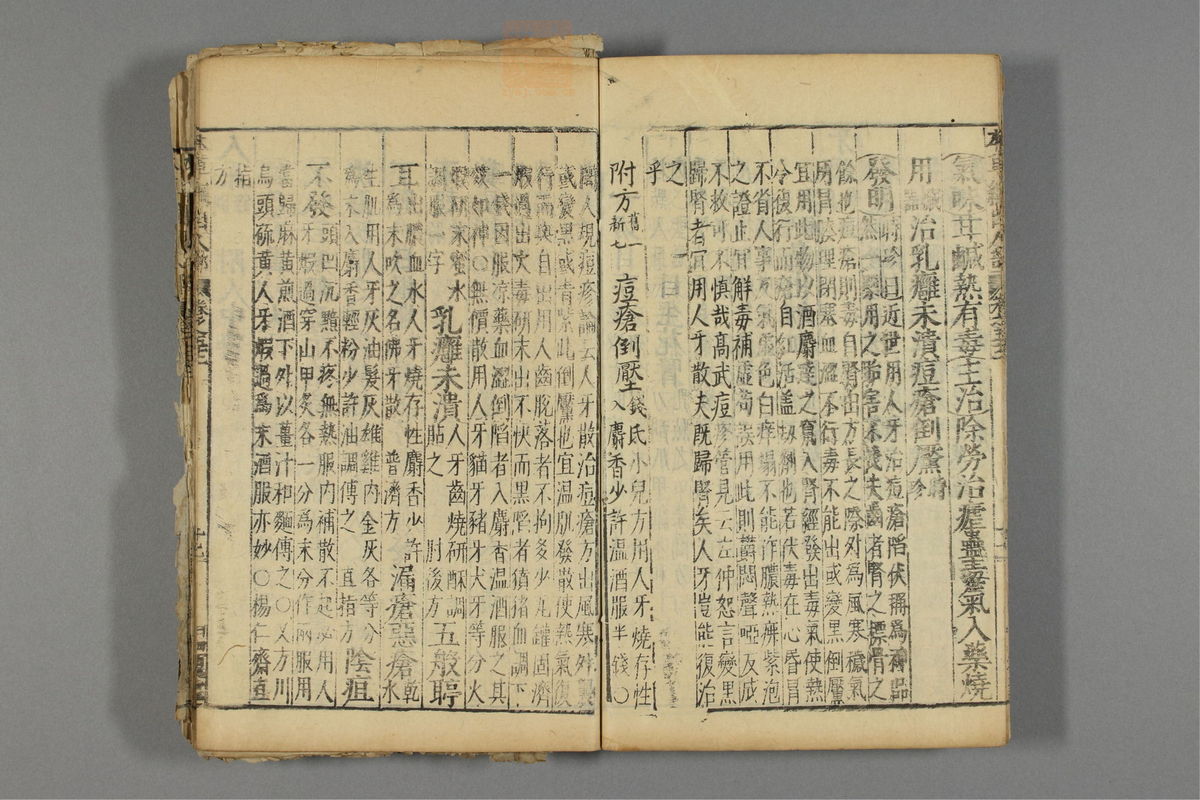 氣味甘鹹熱有毒主治除勞治瘧蠱毒氣入藥燒
用治乳癰未潰痘瘡倒黶
發明時珍曰近世用人牙治痘瘡陷伏稱為神品
然一槩用之貽害不淺夫齒者腎之標骨之
餘也痘瘡則毒自腎出方長之際外為風寒穢氣
所冒腠理閉塞血澀不行毒不能出或變黑倒黶
宜用此物以酒麝達之竄入腎經發出毒氣使熱
令復行而瘡自紅活蓋劫劑也若伏毒在心昏冒
不省人事及氣虛色白痒塌不能作膿熱痱紫泡
之證止宜解毒補虛苟誤用此則鬱悶聲啞反成
不救可不慎哉高武痘疹管見云左仲恕言變黑
歸腎者宜用人牙散夫既歸腎矣人牙豈能復治
之乎
附方舊一新七痘瘡倒黶錢氏小兒方用人牙燒存性
入麝香少許溫酒服半錢○
聞人規痘疹論云人牙散治痘瘡方出風寒外襲
或變黑或青紫此倒黶也宜溫肌發散使熱氣復
行而斑自出用人齒脫落者不拘多少瓦罐固濟
煅過出火毒研末出不快而黑陷者猪血調下
一錢因服涼藥血澀倒陷者入麝香溫酒服之其
效如神○無價散用人牙貓牙豬牙犬牙等分火
煅研末蜜水
調服一字乳癰未潰人牙齒燒研酥調
貼之肘後方五般聤
耳出膿血水人牙燒存性麝香少許
為末吹之名佛牙散普濟方漏瘡惡瘡乾水
生肌用人牙灰油髮灰雄雞內金灰各等分
為末入麝香輕粉少許油調傅之直指方陰疽
不發頭凹沉黯不疼無熱服內補散不起必用人
牙煆過穿山甲炙各一分為末分作兩服用
當歸麻黃煎酒下外以薑汁和麪傅之○又方川
烏頭硫黃人牙煆過為末酒服亦妙○楊仁齋直
指
方